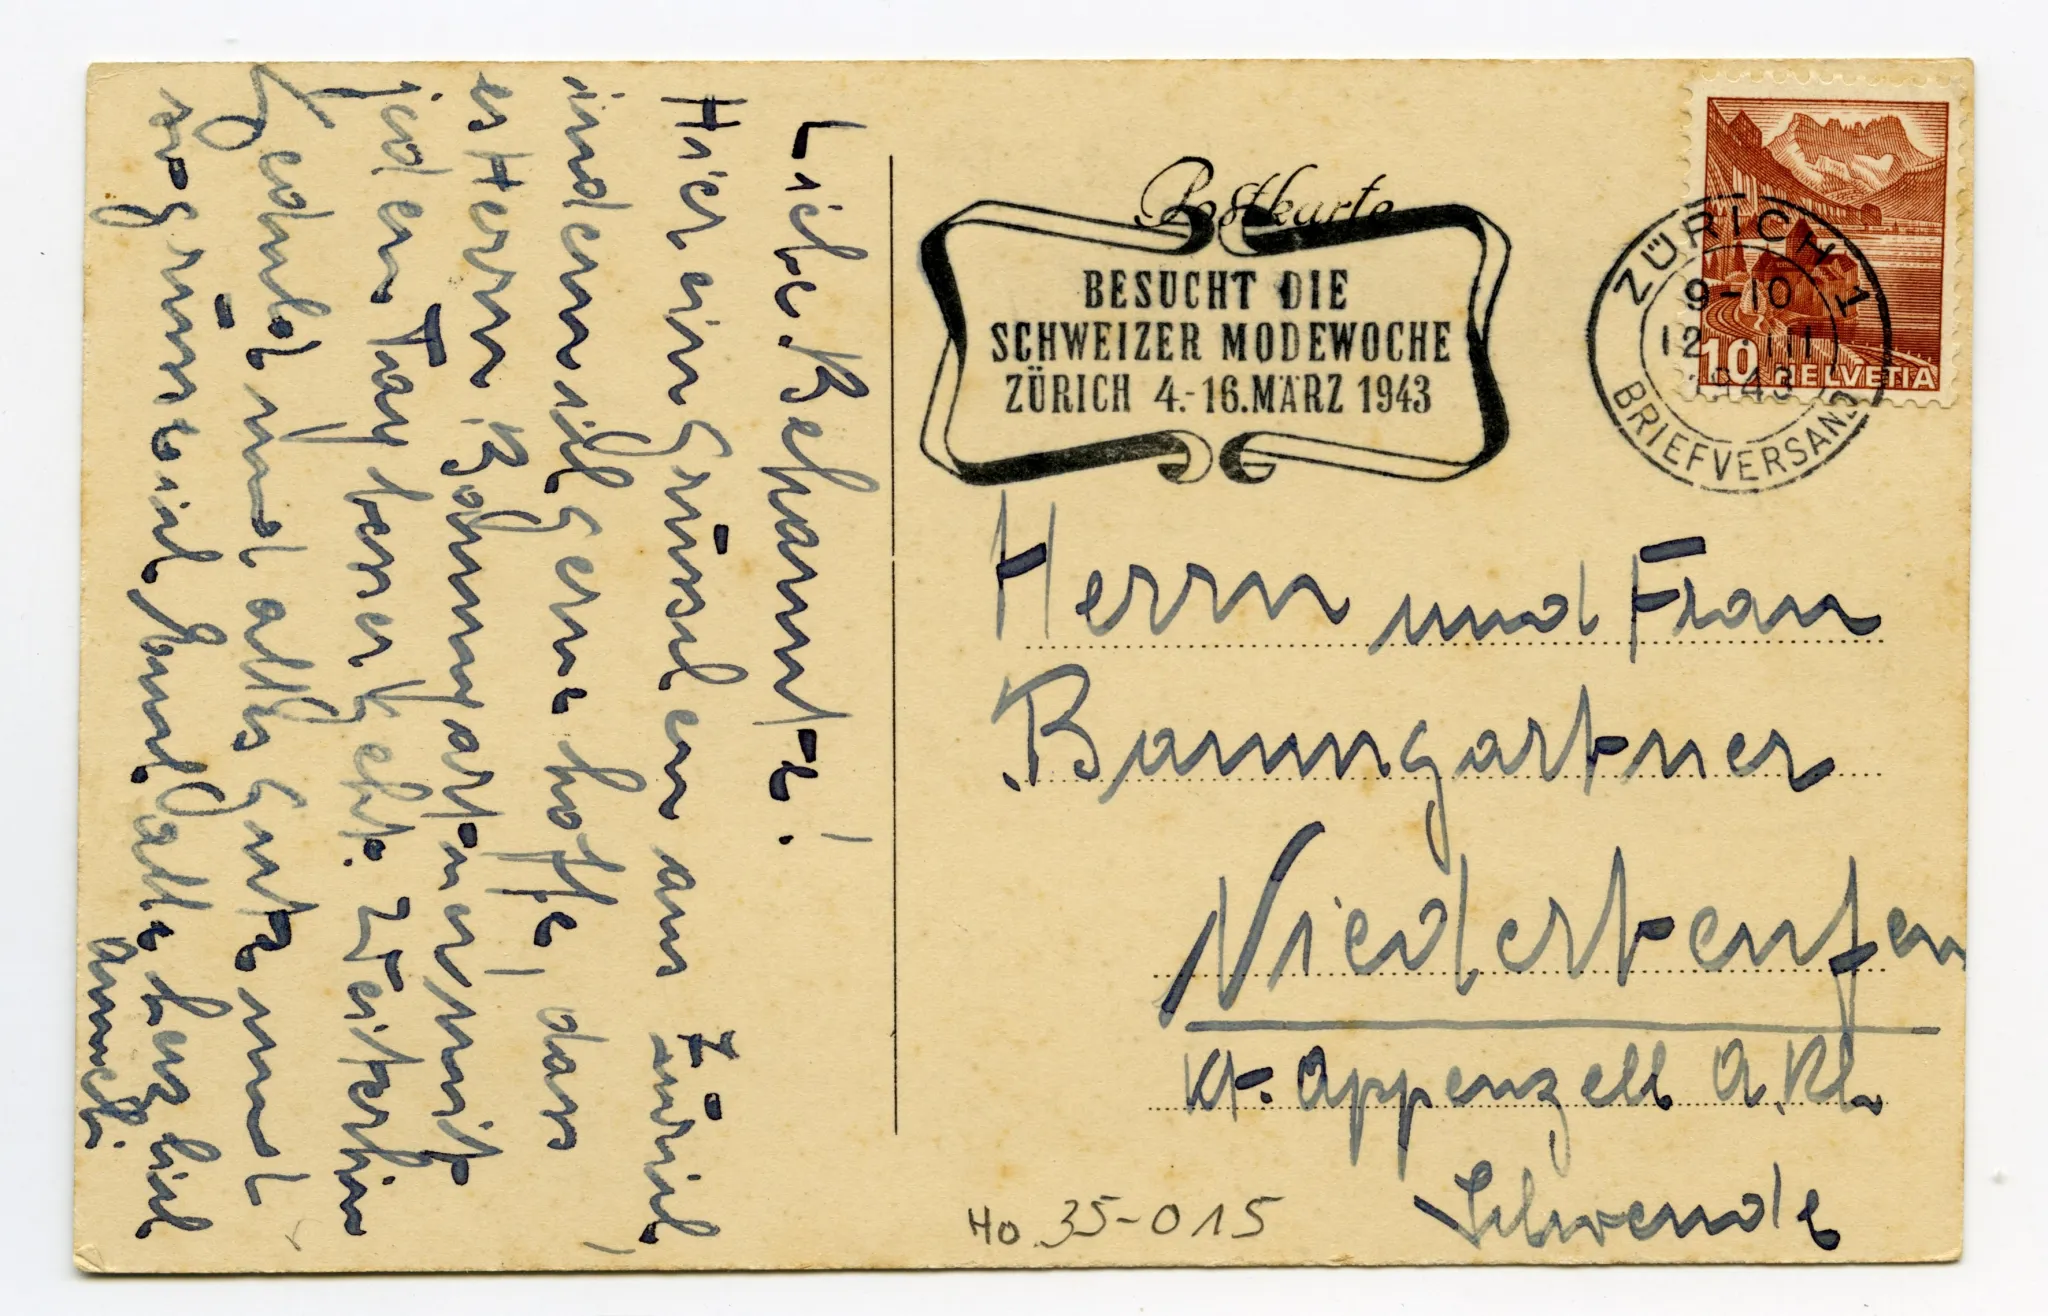 Postkarte
BESUCHT DIE
SCHWEIZER MODEWOCHE
ZÜRICH 4.-16. MÄRZ 1943
ZÜRICH 1
9-10
12. III
1943
BRIEFVERSAND
10 HELVETIA
Liebe Bekannte!
Hier ein Grüsslein aus Zürich
indem ich gerne hoffe, dass
es Herrn Baumgartner mit
jedem Tag besser geht. Weiterhin
Geduld und alles Gute und
grüsse ich alle herzlich
Anneli
Herrn und Frau
Baumgartner
Niederteufen
Kt. Appenzell A. Rh.
Schwende
Ho 35-015